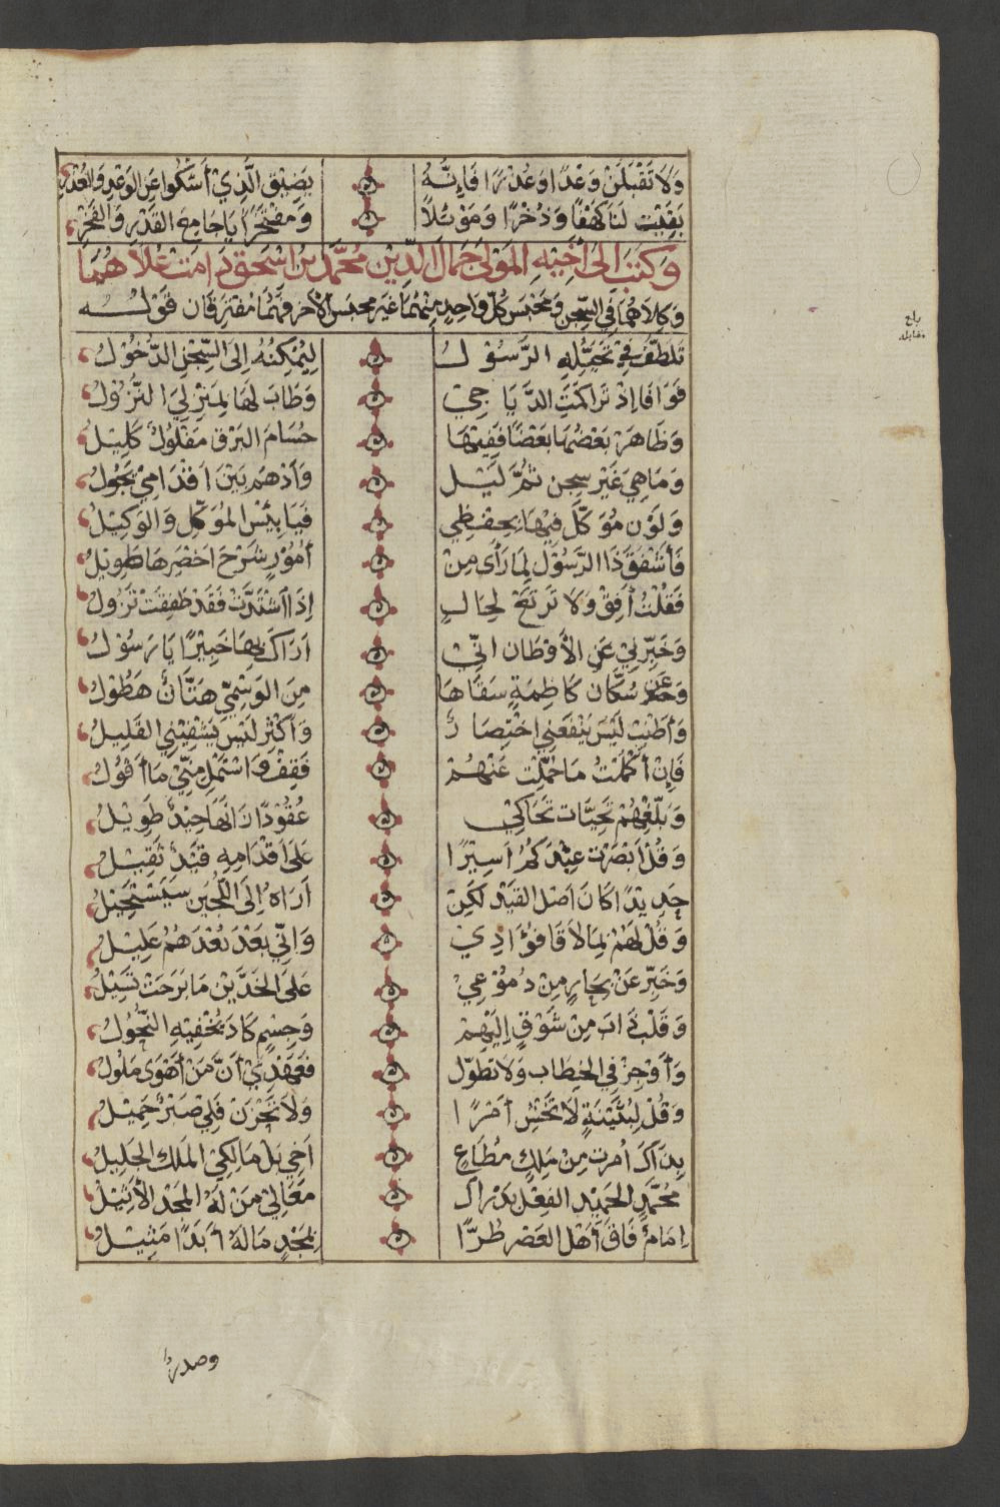 وَلَا تَقْبَلَنْ وَعْدًا وَعُذْرًا فَإِنَّهُ بِضِيْقِ الَّذِيْ أَشْكُوا عَنِ الوَعْدِ وَالعُذْرِ
بَقِيْتَ لَنَا كَهْفًا وَذُخْرًا وَمَوْئِلًا وَمُفْتَخَرًا يَا جَامِعَ القَدْرِ وَالفَخْرِ
وَكَتَبَ إِلَى أَخِيْهِ المَوْلَى جَمَالِ الدِّيْنِ مُحَمَّدِ بْنِ اسْحٰقَ دَامَتْ عُلَاهُمَا
وَكِلَاهُمَا فِي السِّجْنِ وَمَحْبَسُ كُلِّ وَاحِدٍ مِنْهُمَا غَيْرُ مَحْبَسِ الآخَرِ فَهُمَا مُفْتَرِقَانِ قَوْلُهُ
تَلَطَّفَ فِيْ تَحَيُّلِهِ الرَّسُوْلُ لِيُمْكِنَهُ إِلَى السِّجْنِ الدُّخُوْلُ
فَوَافَا إِذْ تَرَاكَمَتِ الدَّيَاجِيْ وَطَابَ لَهَا بِمَنْزِلِيَ النُّزُوْلُ
وَظَاهَرَ بَعْضُهَا بَعْضًا فَفِيْهَا حُسَامُ البَرْقِ مَفْلُوْلٌ كَلِيْلُ
وَمَا هِيَ غَيْرُ سِجْنٍ ثُمَّ لَيْلٍ وَأَدْهَمُ بَيْنَ أَقْدَامِيْ يَجُوْلُ
وَلَوْنٍ مُوَكَّلٍ فِيْهَا بِحِفْظِيْ فَيَا بِئْسَ المُوَكَّلُ وَالوَكِيْلُ
فَأَشْفَقَ ذَا الرَّسُوْلُ لِمَا رَأَى مِنْ أُمُوْرٍ شَرْحُ أَخْصَرِهَا طَوِيْلُ
فَقُلْتُ أَفِقْ وَلَا تَرْتَعْ لِحَالٍ إِذَا اشْتَدَّتْ فَقَدْ طَفِقَتْ تَزُوْلُ
وَخَبِّرْنِيْ عَنِ الأَوْطَانِ انِّيْ أَرَاكَ بِهَا خَبِيْرًا يَا رَسُوْلُ
وَعَنْ سُكَّانِ كَاظِمَةٍ سَقَاهَا مِنَ الوَسْمِيِّ هَتَّانٌ هَطُوْلُ
وَأَطْنِبْ لَيْسَ يَنْفَعُنِيْ اخْتِصَارٌ وَأَكْثِرْ لَيْسَ يَشْفِيْنِيْ القَلِيْلُ
فَإِنْ أَكْمَلْتَ مَا حُمِّلْتَ عَنْهُمْ فَقِفْ وَاشْتَمِلْ مِنِّيْ مَا أَقُوْلُ
وَبَلِّغْهُمْ تَحِيَّاتٍ تُحَاكِيْ عُقُوْدًا زَانَهَا جِيْدٌ طَوِيْلُ
وَقُلْ أَبْصَرْتُ عِنْدَكُمُ أَسِيْرًا عَلَى أَقْدَامِهِ قَيْدٌ ثَقِيْلُ
حَدِيْدًا كَانَ أَصْلُ القَيْدِ لَكِنْ أَرَاهُ إِلَى اللُّجَيْنِ سَيَسْتَحِيْلُ
وَقُلْ لَهُمْ بِمَا لَاقَا فُؤَادِيْ وَانِّيْ بَعْدَ بُعْدِهُمُ عَلِيْلُ
وَخَبِّرْ عَنْ بِحَارٍ مِنْ دُمُوْعِيْ عَلَى الخَدَّيْنِ مَا بَرِحَتْ تَسِيْلُ
وَقَلْبٍ ذَابَ مِنْ شَوْقٍ إِلَيْهِمْ وَجِسْمٍ كَادَ يُخْفِيْهِ النُّحُوْلُ
وَأَوْجِزْ فِي الخِطَابِ وَلَا تُطَوِّلْ فَعَهْدِيْ أَنَّ مَنْ أَهْوَى مَلُوْلُ
وَقُلْ لِبُثَيْنَةٍ لَا تَخْشَ أَمْرًا وَلَا تَحْزَنْ فَلِيْ صَبْرٌ جَمِيْلُ
بِذَاكَ أُمِرْتُ مِنْ مَلِكٍ مُطَاعٍ أَخِيْ بَلْ مَالِكِيْ المَلِكُ الجَلِيْلُ
مُحَمَّدٍ الحَمِيْدِ الفِعْلِ بَدْرِ الْ مَعَالِيْ مَنْ لَهُ المَجْدُ الأَثِيْلُ
إِمَامٌ فَاقَ أَهْلَ العَصْرِ طُرًّا بِمَجْدٍ مَا لَهُ أَبَدًا مَثِيْلُ
بلغ
مقابلة
وصدرٌ